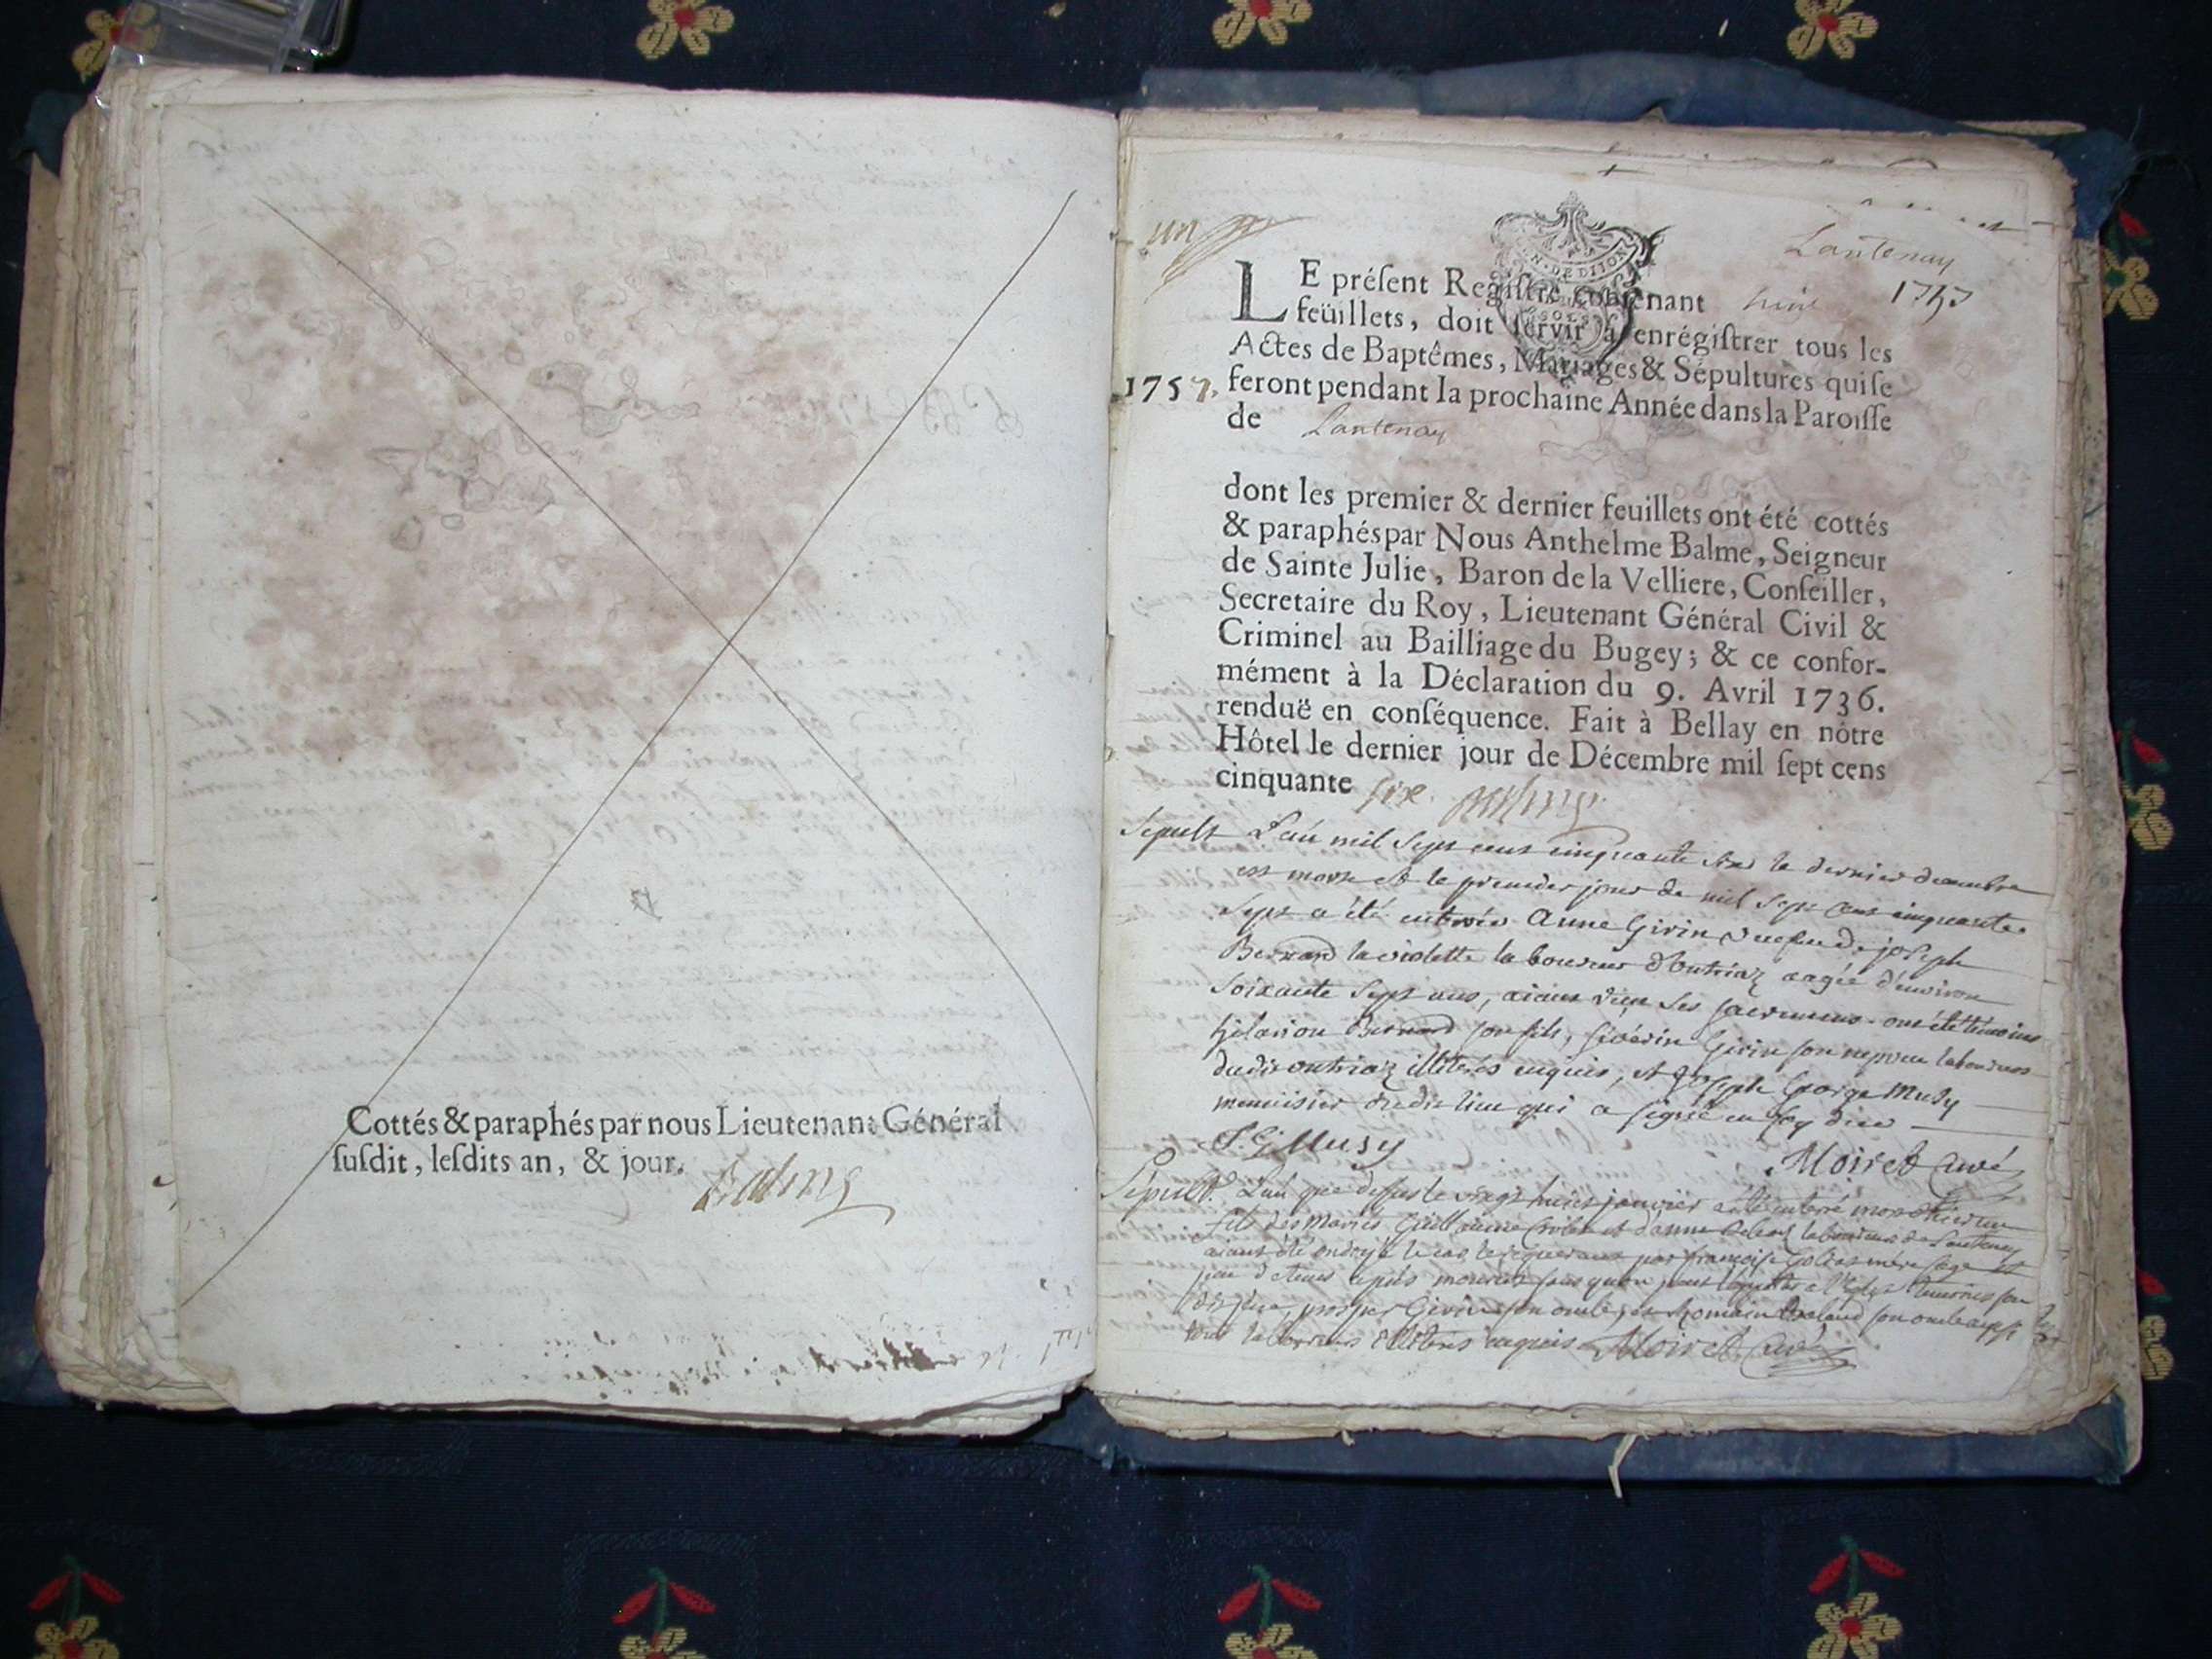 Cottés & paraphés par nous Lieutenant Général
ſuſdit, leſdits an, & jour.
Balme
un
N. DE DIJON
SOLS
Lantenay
1757
LE préſent Regiſtre contenant huit
feüillets, doit ſervir à enrégiſtrer tous les
Actes de Baptêmes, Mariages & Sépultures qui ſe
1757. feront pendant la prochaine Année dans la Paroiſſe
de Lantenay
dont les premier & dernier feuillets ont été cottés
& paraphés par Nous Anthelme Balme, Seigneur
de Sainte Julie, Baron de la Velliere, Conſeiller,
Secretaire du Roy, Lieutenant Général Civil &
Criminel au Bailliage du Bugey; & ce confor-
mément à la Déclaration du 9. Avril 1736.
renduë en conſéquence. Fait à Bellay en nôtre
Hôtel le dernier jour de Décembre mil ſept cens
cinquante six. Balme
Sepult L'an mil sept cent cinquante six le dernier decembre
est morte et le premier jour de mil sept cent cinquante
sept a été enterrée Anne Girin veufue de joseph
Bernard la violette laboureur d'outriaz aagée d'environ
soixante sept ans, aiant reçu ses sacremens. ont été témoins
hilarion Bernard son fils, séverin Girin son neveu laboureurs
dudit outriaz illiterés enquis, et joseph George Musy
menuisier dudit lieu qui a signé en foy de ce
J. G Musy
Moiret Curé
Sepult. L'an que dessus le vingt huit janvier a été enterré mort
fils des mariés Guillaume et d'anne laboureur de Lantenay
aiant été ondoyé le cas le requerant par françoise mère sage et
peu de tems après mourut sans qu'on peut l'aporter a l'Eglise témoins son
dit père, prosper Girin son oncle, et Romain son oncle aussi
tous laboureurs illiterés enquis Moiret Curé